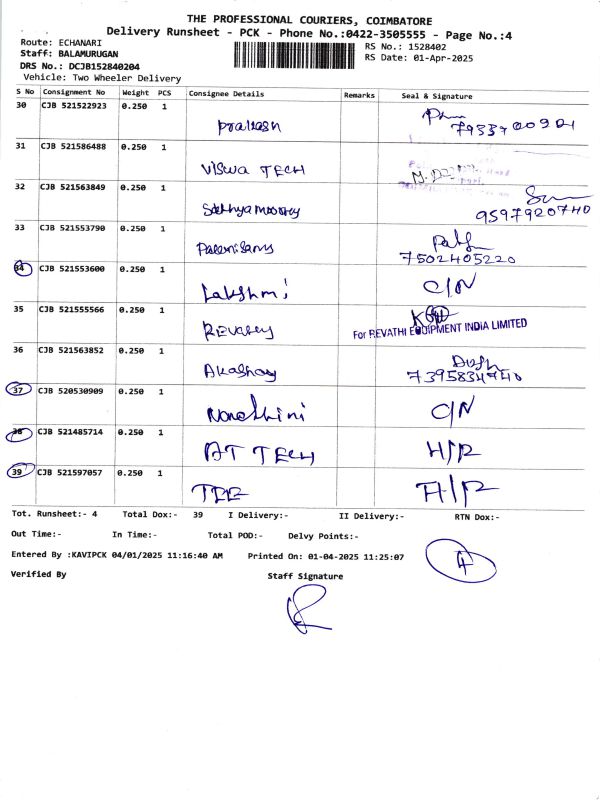 THE PROFESSIONAL COURIERS, COIMBATORE
Delivery Runsheet - PCK - Phone No.:0422-3505555 - Page No.:4
Route: ECHANARI
RS No.: 1528402
Staff: BALAMURUGAN
RS Date: 01-Apr-2025
DRS No.: DCJB152840204
Vehicle: Two Wheeler Delivery
S No Consignment No Weight PCS Consignee Details Remarks Seal & Signature
30 CJB 521522923 0.250 1 prakash
31 CJB 521586488 0.250 1 Viswa TECH
32 CJB 521563849 0.250 1 Sathyamoorthy 9597920740
33 CJB 521553790 0.250 1 7502405220
34 CJB 521553600 0.250 1 Lakshmi C/N
35 CJB 521555566 0.250 1 Revathy
For REVATHI EQUIPMENT INDIA LIMITED
36 CJB 521563852 0.250 1
37 CJB 520530909 0.250 1 Nandhini C/N
38 CJB 521485714 0.250 1 AT TECH H/R
39 CJB 521597057 0.250 1
Tot. Runsheet:- 4 Total Dox:- 39 I Delivery:- II Delivery:- RTN Dox:-
Out Time:- In Time:- Total POD:- Delvy Points:-
Entered By :KAVIPCK 04/01/2025 11:16:40 AM Printed On: 01-04-2025 11:25:07
4
Verified By Staff Signature